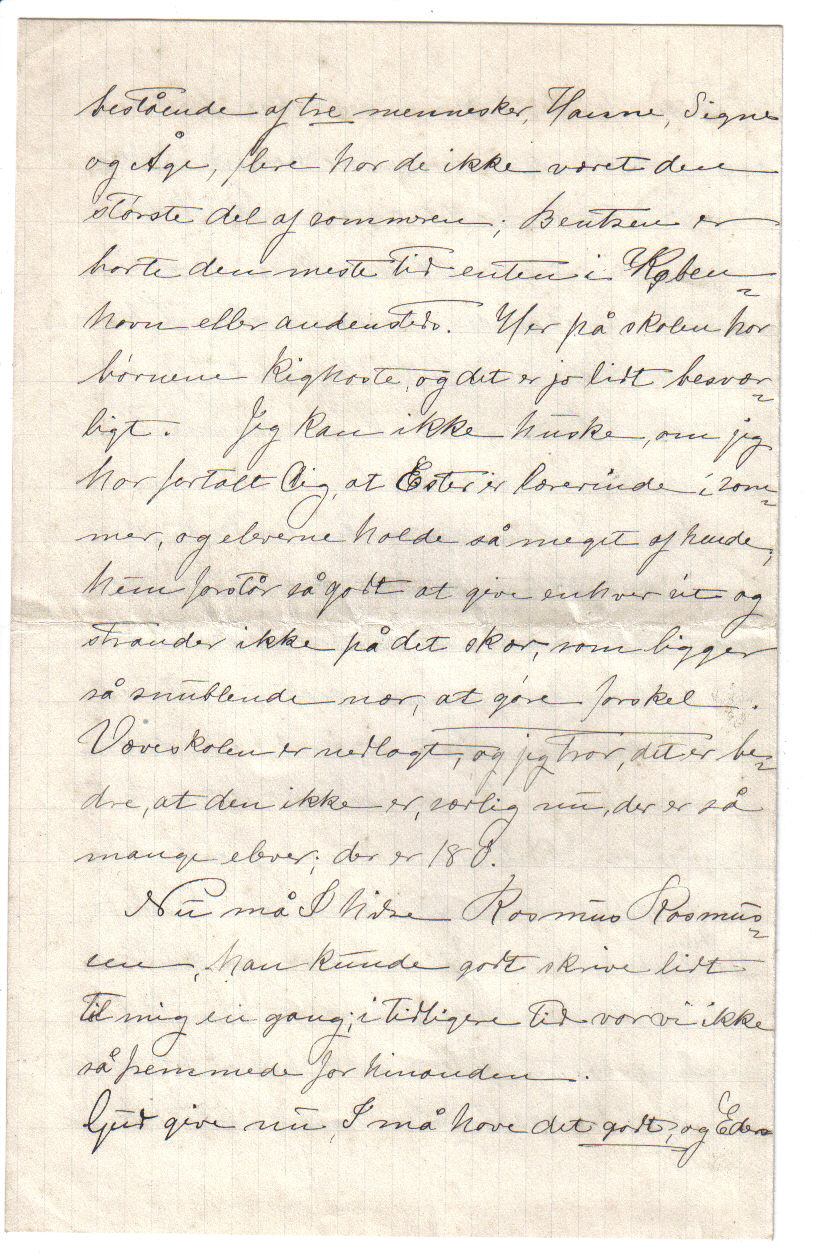 bestående af tre mennesker, Hanne, Signe
og Åge, flere har de ikke været den
største del af sommeren; Bentsen er
borte den meste tid enten i Køben-
havn eller andensteds. Her på skolen har
børnene kighoste, og det er jo lidt besvær-
ligt. Jeg kan ikke huske, om jeg
har fortalt Dig, at Ester er lærerinde i som-
mer, og eleverne holde så meget af hende,
hun forstår så godt at give enhver sit og
strander ikke på det skær, som ligger
så snublende nær, at gøre forskel.
Væveskolen er nedlagt, og jeg tror, det er be-
dre, at den ikke er, særlig nu, der er så
mange elever; der er 180.
Nu må I hilse Rasmus Rasmus-
sen, han kunde godt skrive lidt
til mig en gang; i tidligere tid var vi ikke
så fremmede for hinanden.
Gud give nu, I må have det godt, og Eders